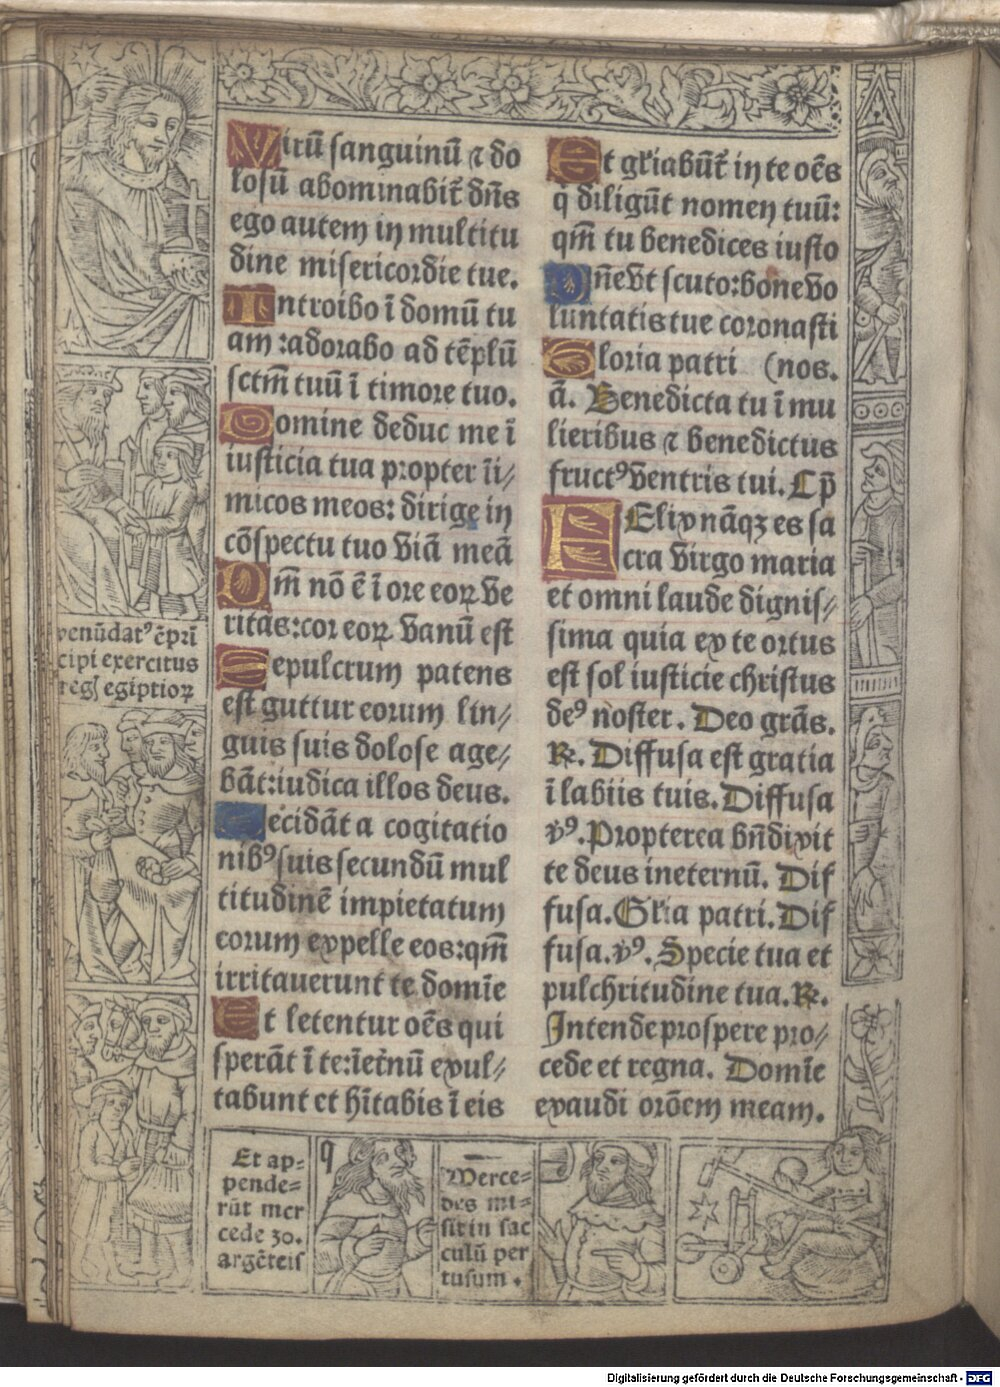 Virū sanguinū ⁊ do
losū abominabit̃ dn̄s
ego autem in multitu
dine misericordie tue.
Introibo ī domū tu
am :adorabo ad tēplū
sctm̄ tuū ī timore tuo.
Domine deduc me ī
iusticia tua propter īi⸗
micos meos: dirige in
cōspectu tuo viā meā
Qm̄ nō ē ī ore eoꝝ ve
ritas:cor eoꝝ vanū est
Sepulcrum patens
est guttur eorum lin⸗
guis suis dolose age⸗
bāt:iudica illos deus.
Decidāt a cogitatio
nibꝰ suis secundū mul
titudinē impietatum
eorum expelle eos:qm̄
irritauerunt te domīe
Et letentur oēs qui
sperāt ī te:īeťnū exul⸗
tabunt et hītabis ī eis
Et gľiabūt̃ in te oēs
q̄ diligūt nomen tuū:
qm̄ tu benedices iusto
Dn̄e vt scuto:bone vo
luntatis tue coronasti
Gloria patri (nos.
ā. Benedicta tu ī mu
lieribus ⁊ benedictus
fructꝰ ventris tui. Cp̄
FElix nāqꝫ es sa
cra virgo maria
et omni laude dignis⸗
sima quia ex te ortus
est sol iusticie christus
deꝰ noster. Deo grās.
℟. Diffusa est gratia
ī labiis tuis. Diffusa
v̇ꝰ. Propterea bn̄dixit
te deus ineternū. Dif
fusa. Gľia patri. Dif
fusa. v̇ꝰ. Specie tua et
pulchritudine tua. ℟.
Intende prospere pro⸗
cede et regna. Domīe
exaudi orōem meam.
venūdatꝰ ē prī
cipi exercitus
reg egiptioꝝ
Et ap⸗
pende⸗
rūt mer
cede 30.
argēteis
q
Merce⸗
des mi⸗
sit in sac
culū per
tusum.
Digitalisierung gefördert durch die Deutsche Forschungsgemeinschaft - DFG